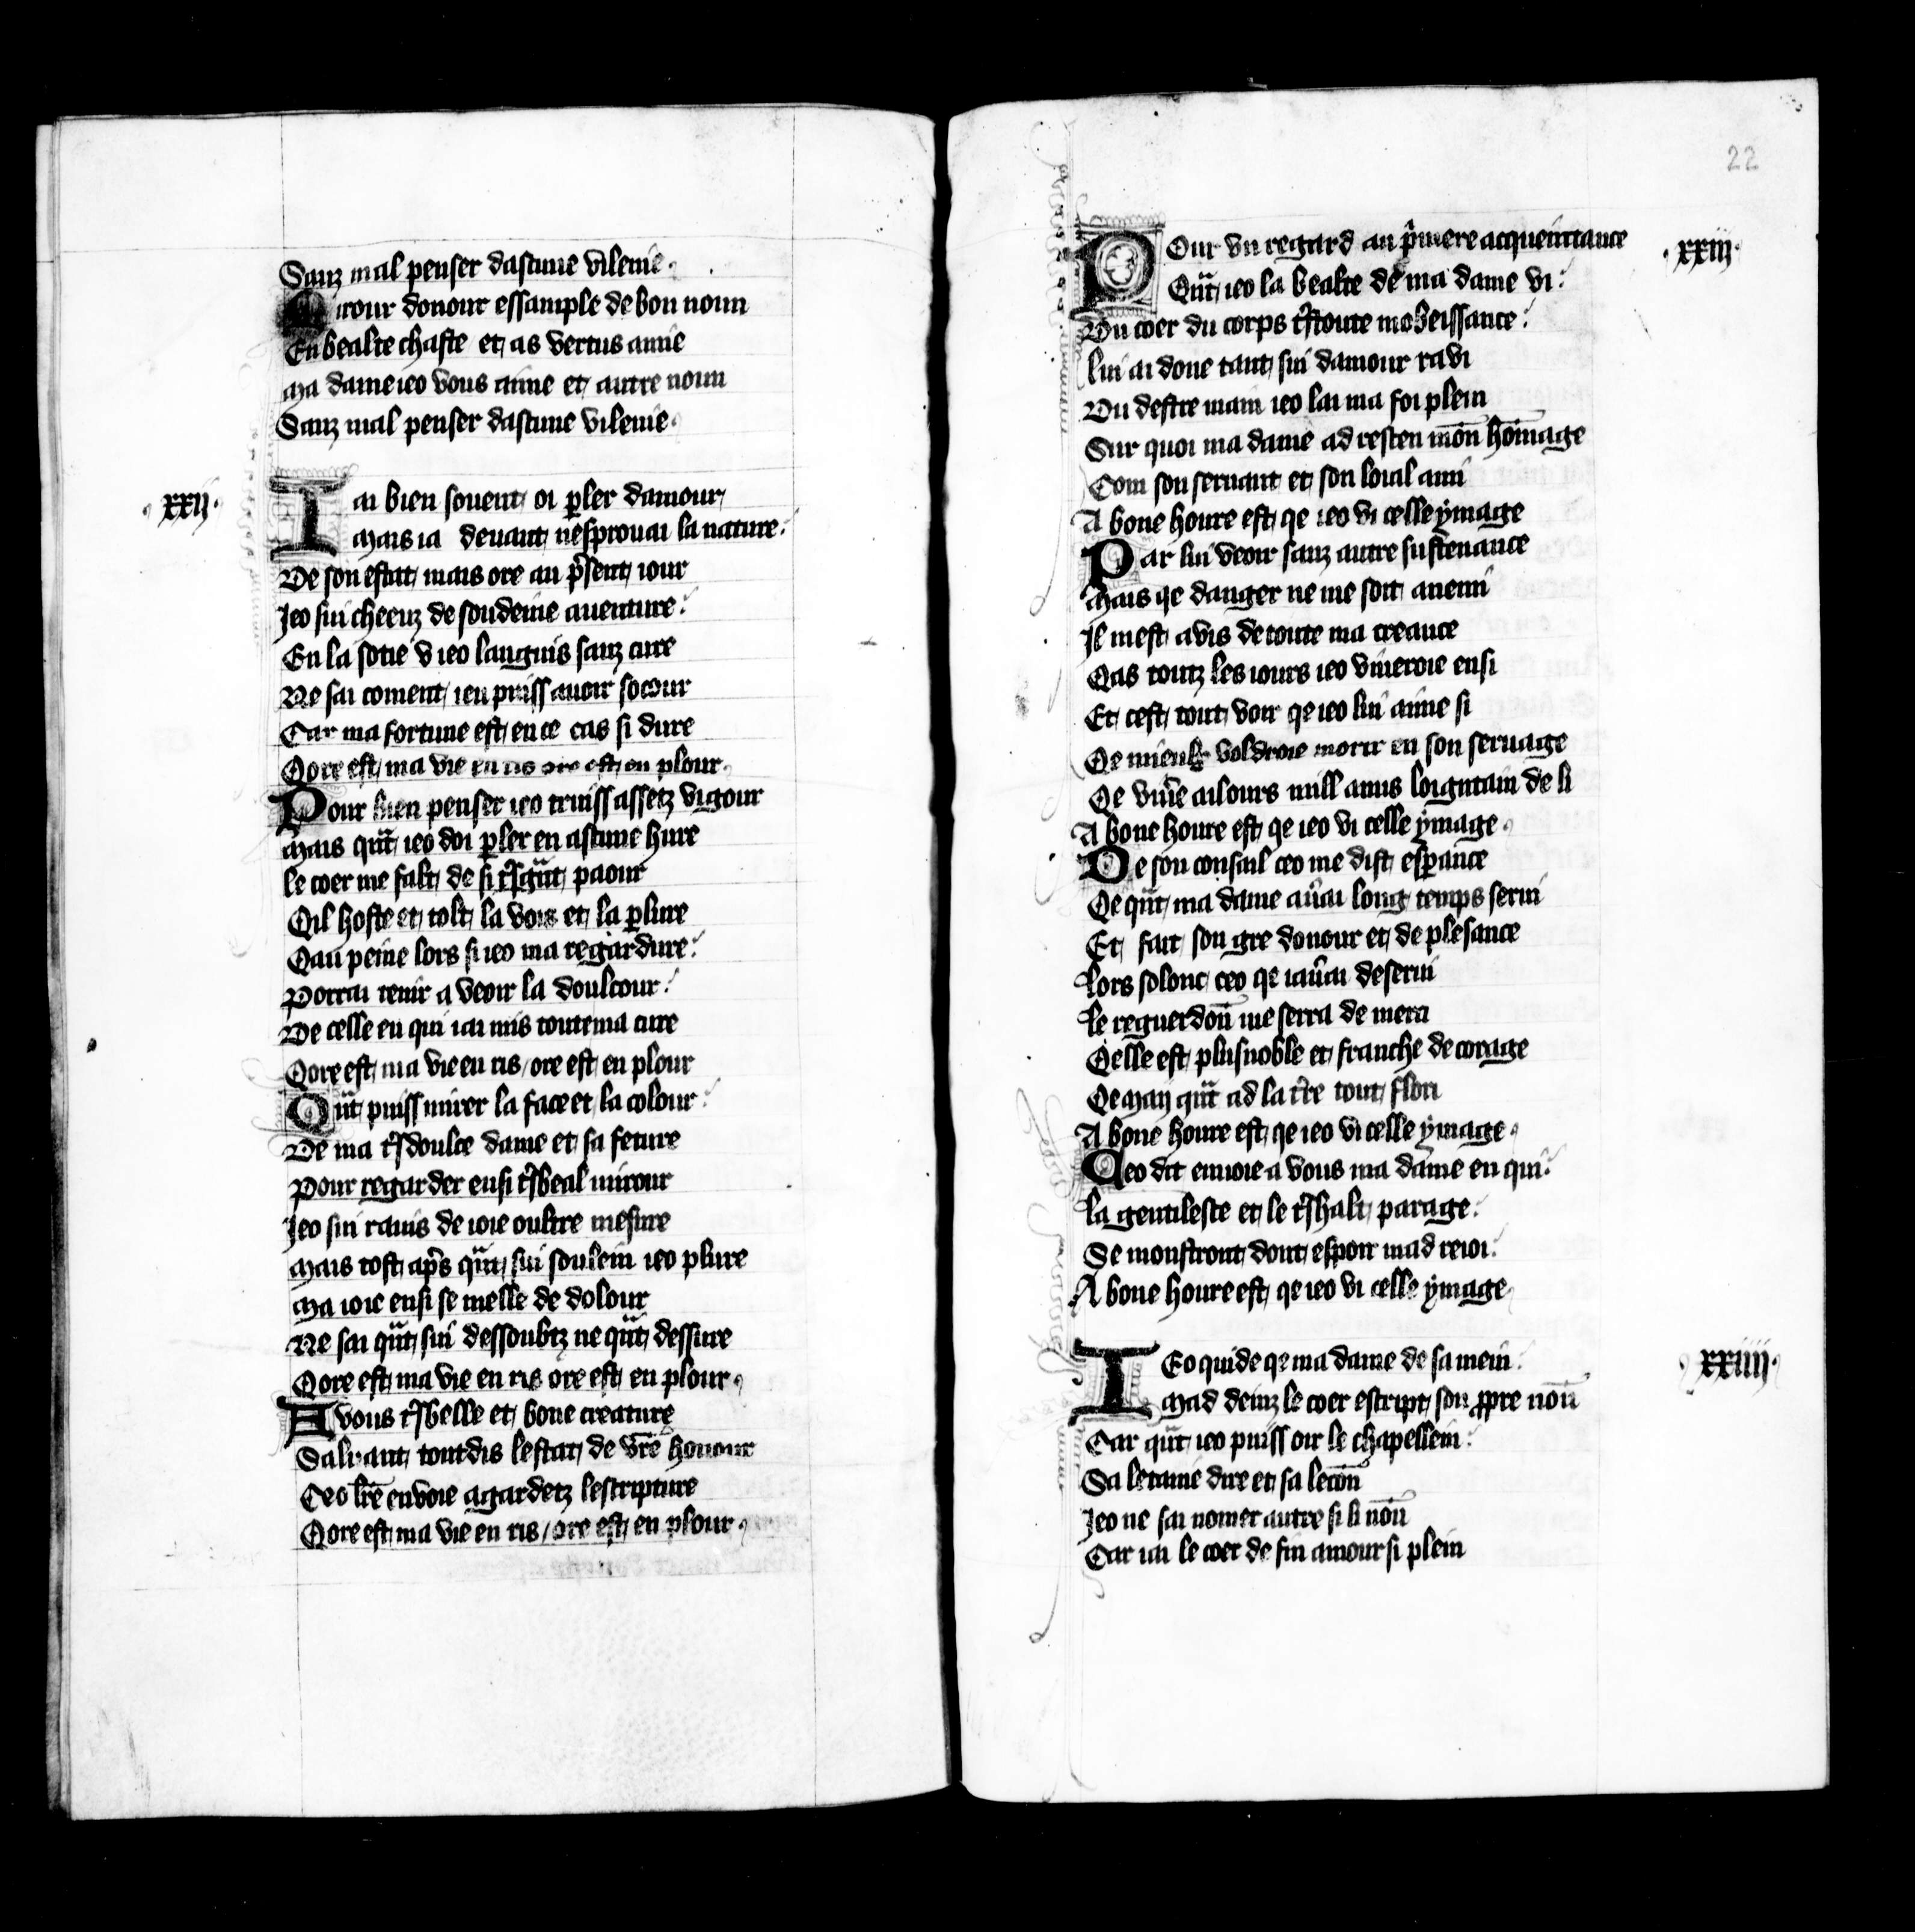 Sanz mal penser dascune vilenie.
irour donour essample de bon noun
En bealte chaste et as vertus amie
Ma dame ieo vous aime et autre noun
Sanz mal penser dascune vilenie.
.xxij.
I ai bien sovent oi ꝑler damour
Mais ia devant nesprouai la nature:
De son estat mais ore au p̄sent iour
Jeo sui cheeuz de soudeine auenture:
En la sotie v ieo languis sanz cure
Ne sai coment ieu puiss auoir socour
Car ma fortune est en ce cas si dure
Qore est ma vie en ris ore est en plour.
Pour bien penser ieo truiss assetz vigour
Mais qu̅t ieo doi ꝑler en ascune hure
le coer me falt de si tr̅sgu̅t paour
Qil hoste et tolt la vois et la ꝑlure
Qau peine lors si ieo ma regardure:
Porrai tenir a veoir la doulcour:
De celle en qui iai mis toute ma cure
Qore est ma vie en ris / ore est en plour
Qu̅t puiss mirer la face et la colour:
De ma tr̅sdoulce dame et sa feture
Pour regarder ensi tr̅sbeal mirour
Jeo sui rauis de ioie oultre mesure
Mais tost ap̄s qu̅t sui soulein ieo plure
Ma ioie ensi se melle de dolour
Ne sai qu̅t sui dessoubtz ne qu̅t dessure
Qore est ma vie en ris ore est en plour.
A vous tr̅sbelle et bone creature
Salvant toutdis lestat de vr̅e honour
Ceo lr̅e envoie agardetz lescripture
Qore est ma vie en ris / ore est en plour.
22
.xxiij.
POur un regard au p̄mere acqueintance
Qu̅t ieo la bealte de ma dame vi:
Du coer du corps tr̅stoute mobeissance:
lui ai done tant sui damour ravi
Du destre main ieo lai ma foi plein
Sur quoi ma dame ad resten moun homage
Com son seruant et son loial ami
A bone houre est qe ieo vi celle ymage
Par lui veoir sanz autre sustenance
Mais qe danger ne me soit anemi
Il mest avis de toute ma creance
Qas toutz les iours ieo viueroie ensi
Et cest tout voir qe ieo lui aime si
Qe mieulx voldroie morir en son seruage
Qe viu̅e ailours mill auns loigntain de li
A bone houre est qe ieo vi celle ymage.
De son consail ceo me dist esꝑance
Qe qu̅t ma dame au̅ai long temps serui
Et fait son gre donour et de plesance
lors solonc ceo qe iau̅ai deserui
le reguerdoun̅ me serra de merci
Qelle est plus noble et franche de corage
Qe Maij qu̅t ad la tr̅e tout flori
A bone houre est qe ieo vi celle ymage.
Ceo dit envoie a vous ma dame en qui:
la gentilesce et le tr̅shalt parage:
Se monstront dont espoir mad reioi:
A bone houre est qe ieo vi celle ymage.
.xxiiij.
IEo quide qe ma dame de sa mein:
Mad deinz le coer escript son ꝓpre noun̅
Car qu̅t ieo puiss oir le chapellein:
Sa letanie dire et sa lecon̅
Jeo ne sai nomer autre si li noun̅
Car iai le coer de fin amour si plein